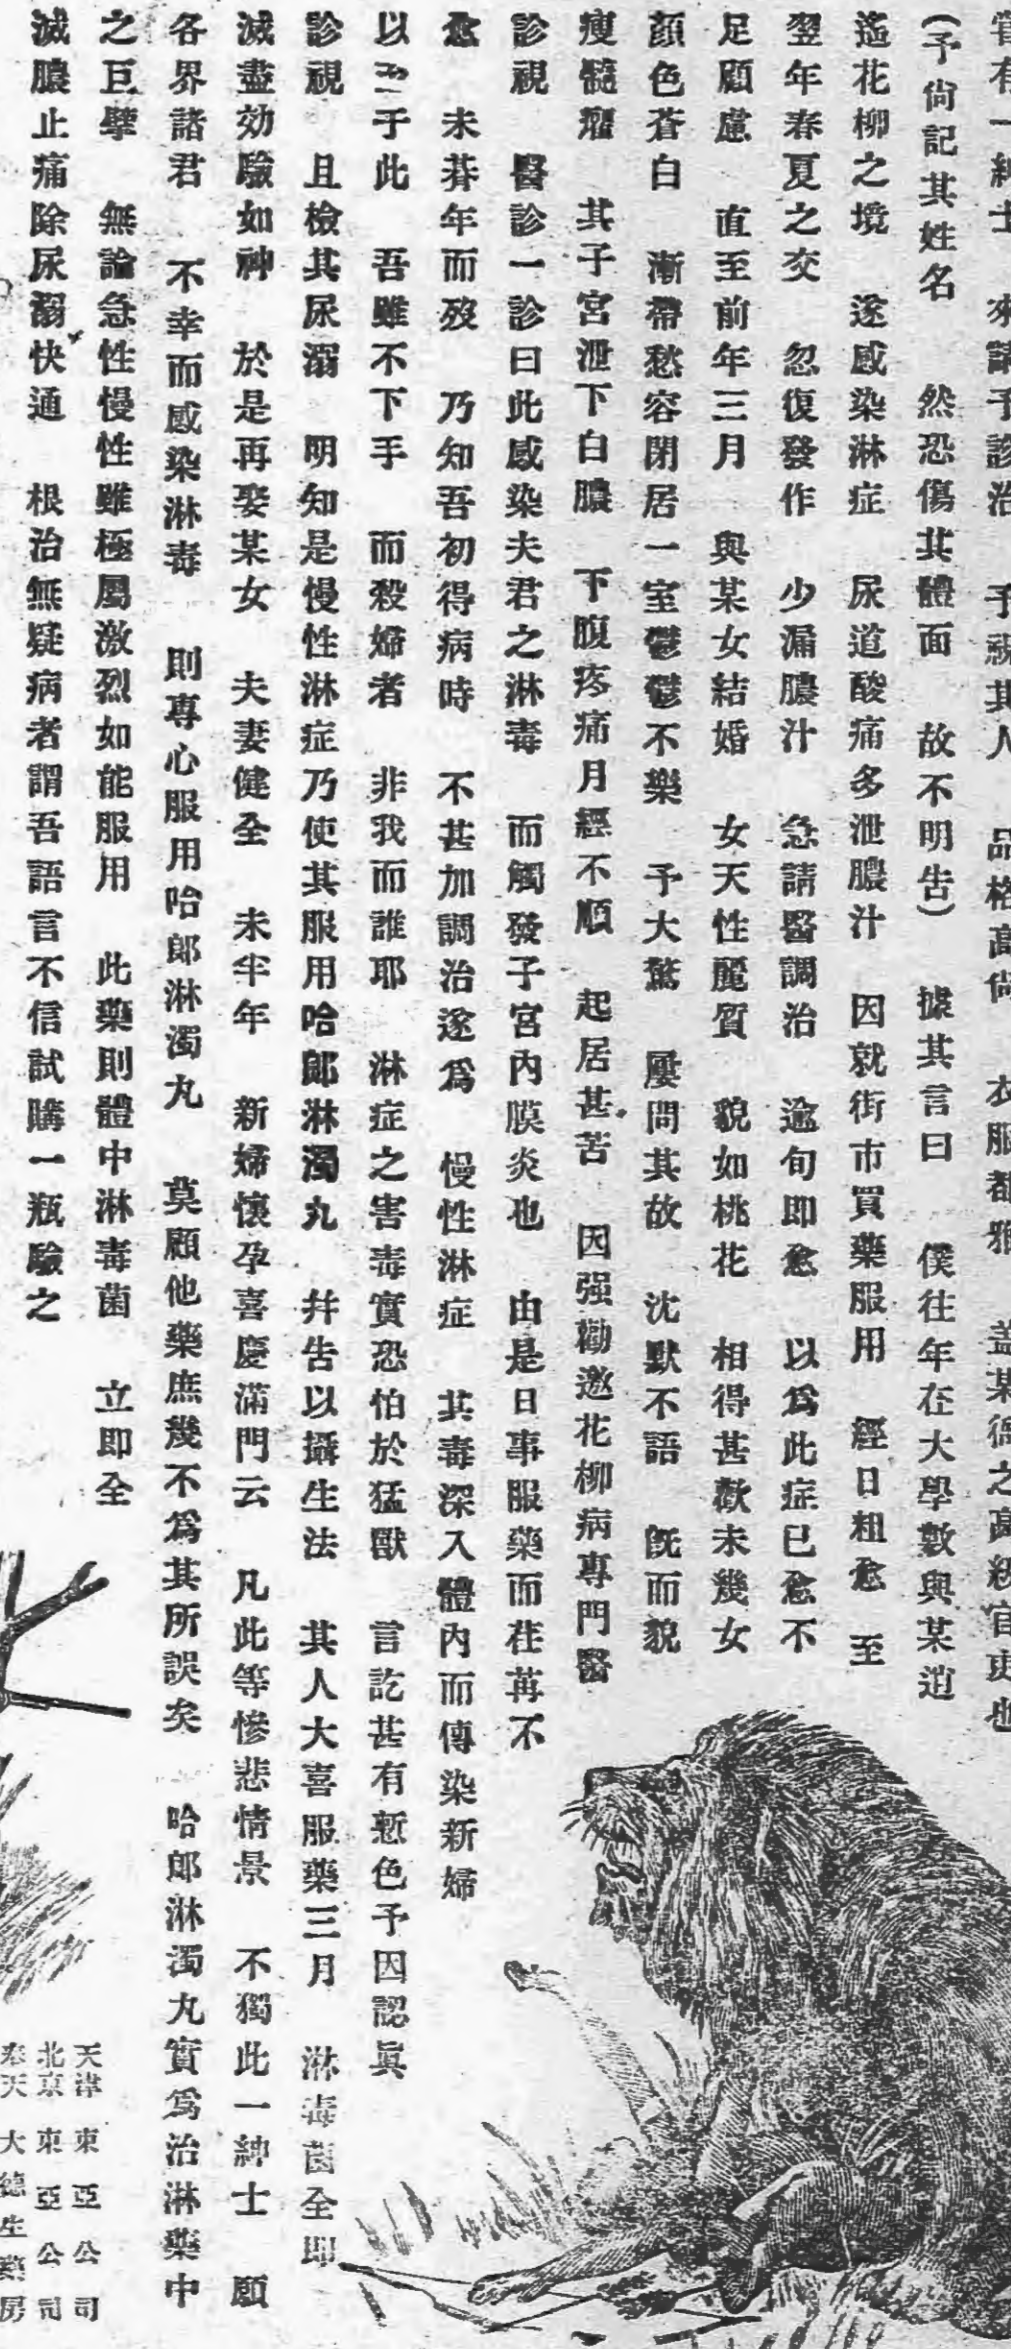 甞有一紳士 來請予診治 予視其人 品格高尚 衣服都雅 盖某德之高級官吏也
(予尙記其姓名 然恐傷其體面 故不明告) 據其言曰 僕往年在大學數與某逍
遙花柳之境 遂感染淋症 尿道酸痛多泄膿汁 因就街市買藥服用 經日粗愈 至
翌年春夏之交 忽復發作 少漏膿汁 急請醫調治 逾旬即愈 以爲此症已愈不
足顧慮 直至前年三月 與某女結婚 女天性麗質 貌如桃花 相得甚歡未幾女
顏色蒼白 漸帶愁容閉居一室鬱鬱不樂 予大驚 屢問其故 沈默不語 旣而貌
瘦髓癯 其子宮泄下白膿 下腹疼痛月經不順 起居甚苦 因强勸邀花柳病專門醫
診視 醫診一診曰此感染夫君之淋毒 而觸發子宮內膜炎也 由是日事服藥而荏苒不
愈 未朞年而歿 乃知吾初得病時 不甚加調治遂爲 慢性淋症 其毒深入體內而傳染新婦
以至于此 吾雖不下手 而殺婦者 非我而誰耶 淋症之害毒實恐怕於猛獸 言訖甚有慙色予因認眞
診視 且檢其尿溺 明知是慢性淋症乃使其服用哈郎淋濁丸 幷告以攝生法 其人大喜服藥三月 淋毒菌全即
滅盡効驗如神 於是再娶某女 夫妻健全 未半年 新婦懷孕喜慶滿門云 凡此等慘悲情景 不獨此一紳士 願
各界諸君 不幸而感染淋毒 則專心服用哈郎淋濁丸 莫顧他藥庶幾不爲其所誤矣 哈郎淋濁丸實爲治淋藥中
之巨擘 無論急性慢性雖極屬激烈如能服用 此藥則體中淋毒菌 立即全
滅膿止痛除尿溺快通 根治無疑病者謂吾語言不信試購一瓶驗之
天津 東亞公司
北京 東亞公司
奉天 大德生藥房